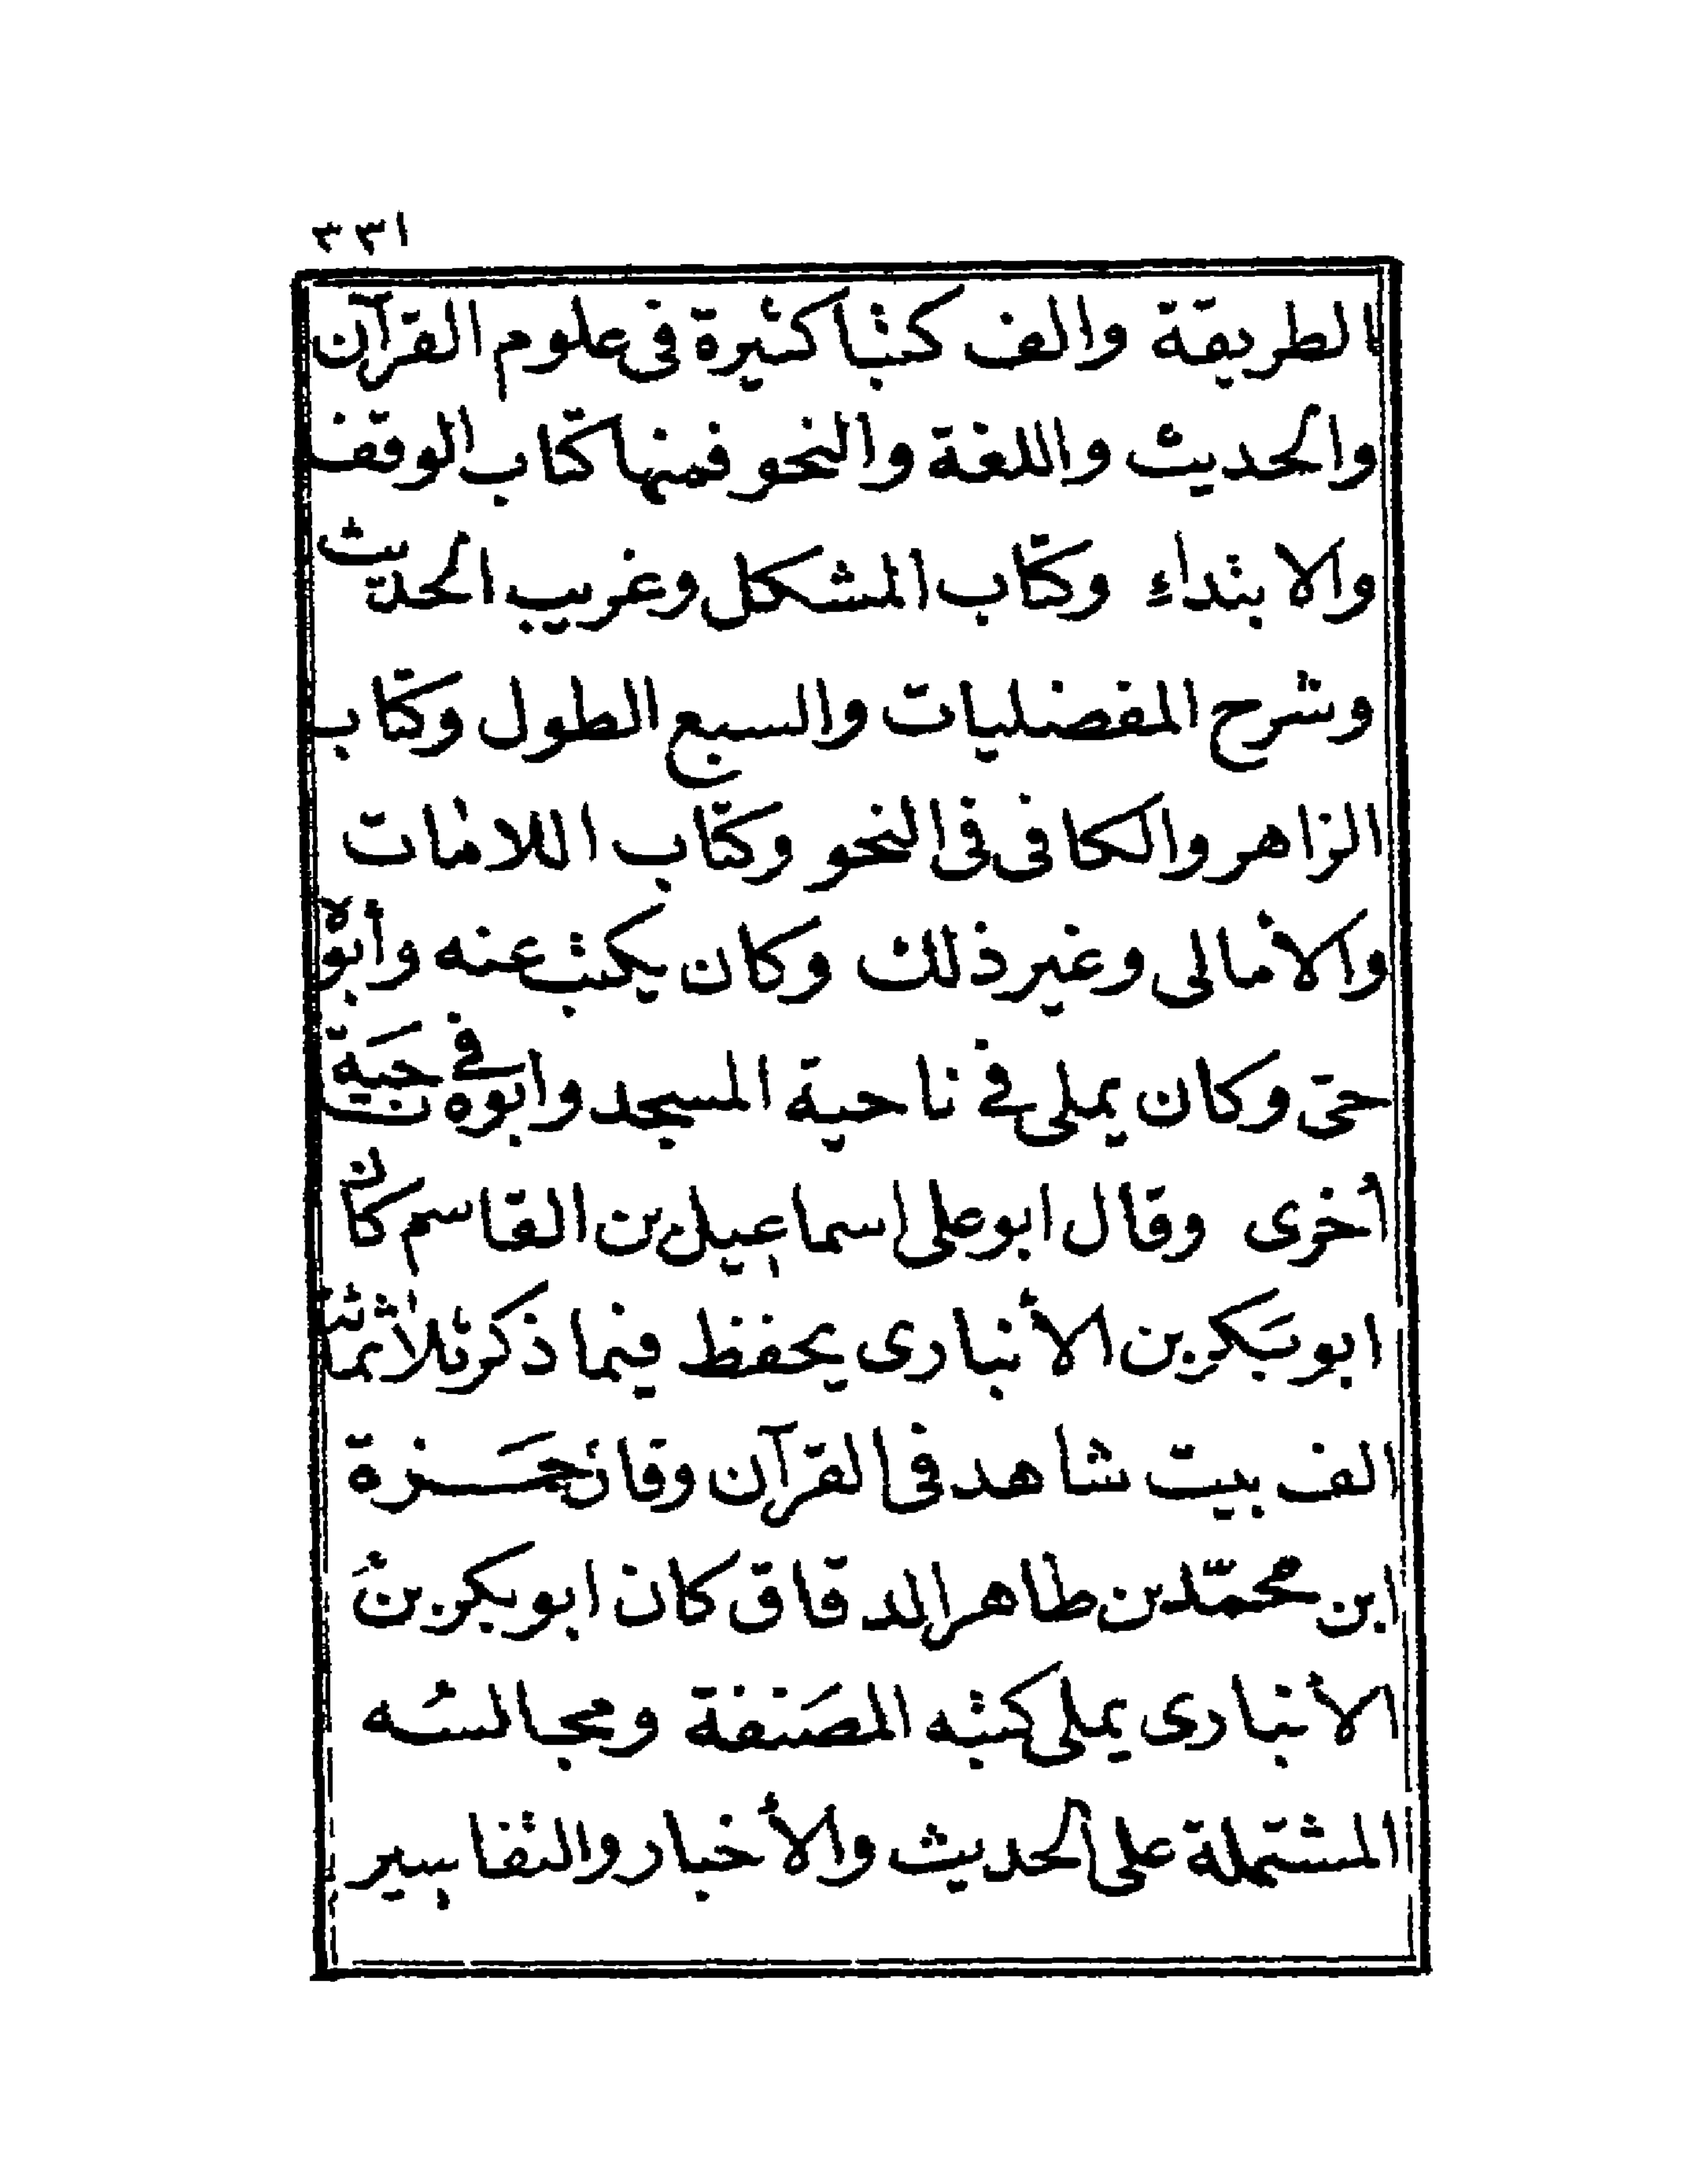 ٣٣١
الطريقة والف كتبا كثيرة فى علوم القرآن
والحديث واللغة والنحو فمنها كتاب الوقف
والابتداء وكتاب المشكل وغريب الحديث
وشرح المفضليات والسبع الطول وكتاب
الزاهر والكافى فى النحو وكتاب اللامات
والأمالى وغير ذلك وكان يكتب عنه وأبوه
حتى وكان يملى فى ناحية المسجد وابوه فى ناحية
أخرى وقال ابو على اسماعيل بن القاسم كان
ابو بكر بن الأنبارى يحفظ فيما ذكر ثلاثمائة
الف بيت شاهد فى القرآن وقال حمزة
ابن محمّد بن طاهر الدقاق كان ابو بكر بن
الأنبارى يملى كتبه المصَنفة ومجالسُه
المشتملة على الحديث والأخبار والتفاسير